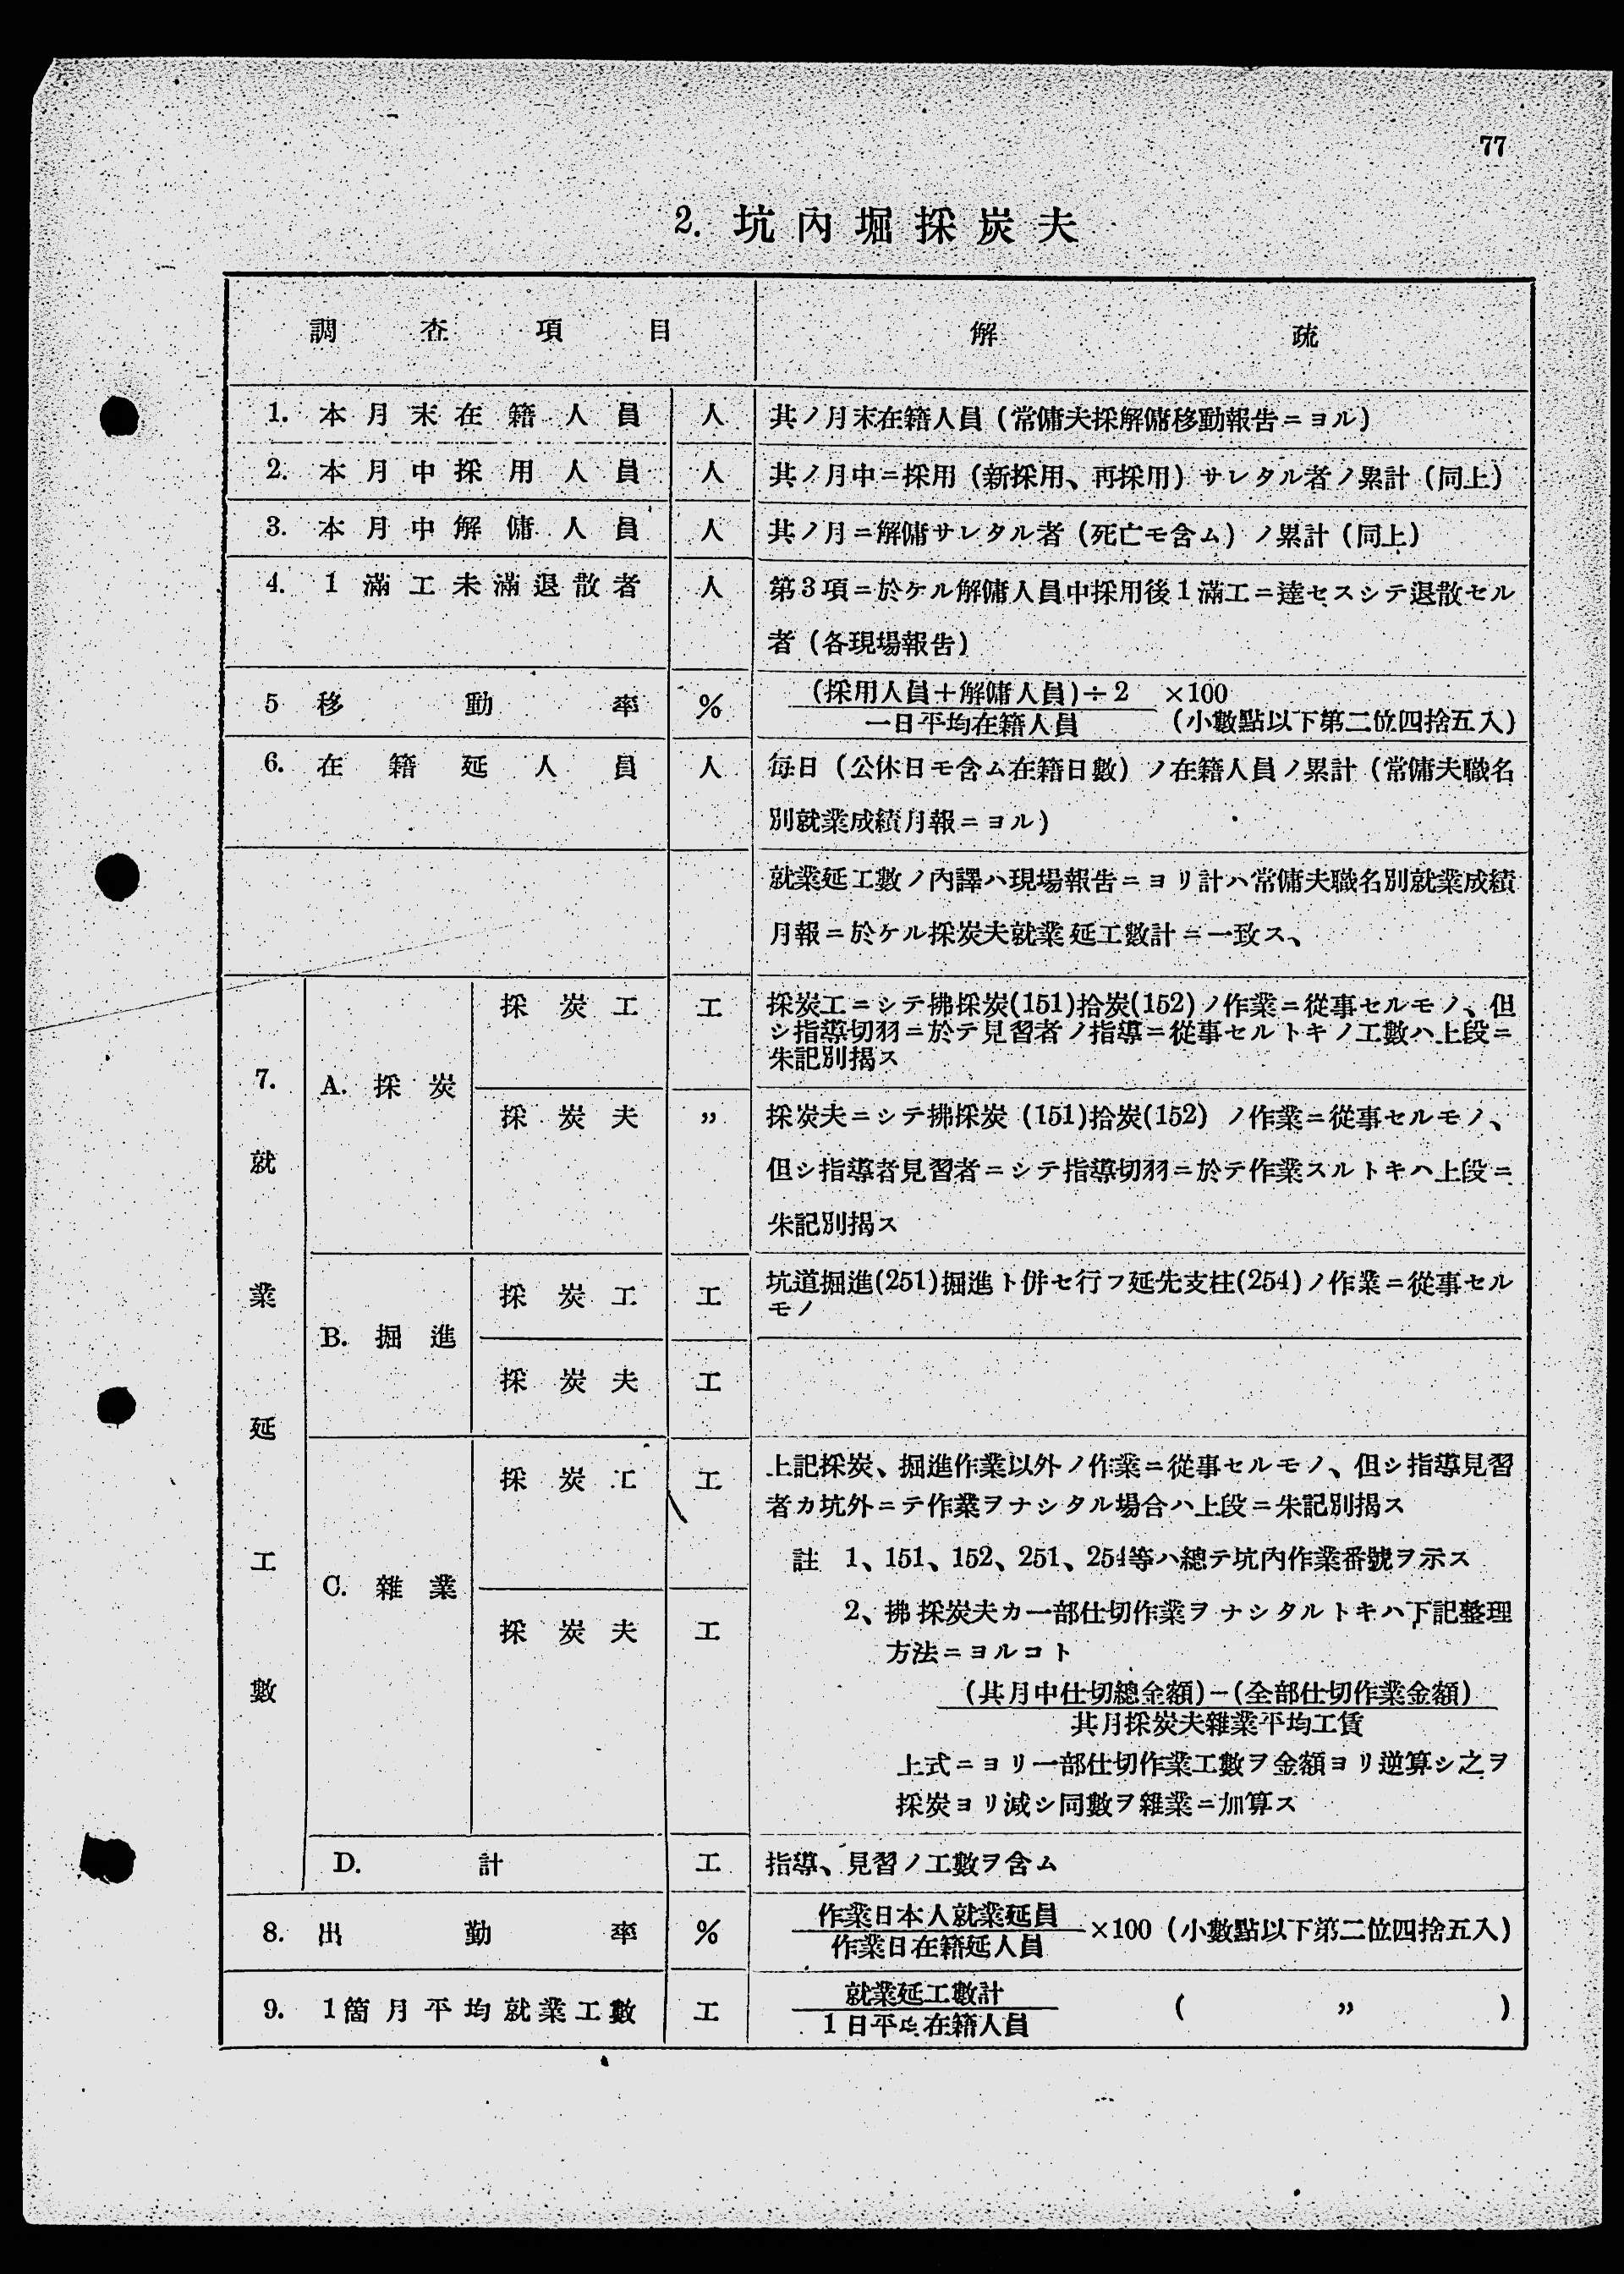 77
2. 坑內堀採炭夫
調査項目 解疏
1. 本月末在籍人員 人 其ノ月末在籍人員(常傭夫採解傭移動報告ニヨル)
2. 本月中採用人員 人 其ノ月中ニ採用(新採用、再採用)サレタル者ノ累計(同上)
3. 本月中解傭人員 人 其ノ月ニ解傭サレタル者(死亡モ含ム)ノ累計(同上)
4. 1滿工未滿退散者 人 第3項ニ於ケル解傭人員中採用後1滿工ニ達セスシテ退散セル
者(各現場報告)
5 移動率 % (採用人員+解傭人員)÷2 ×100
一日平均在籍人員 (小數點以下第二位四捨五入)
6. 在籍延人員 人 每日(公休日モ含ム在籍日數)ノ在籍人員ノ累計(常傭夫職名
別就業成績月報ニヨル)
就業延工數ノ內譯ハ現場報告ニヨリ計ハ常傭夫職名別就業成績
月報ニ於ケル採炭夫就業延工數計ニ一致ス、
7. 就業延工數
A. 採炭
採炭工 工 採炭工ニシテ拂採炭(151)拾炭(152)ノ作業ニ從事セルモノ、但
シ指導切羽ニ於テ見習者ノ指導ニ從事セルトキノ工數ハ上段ニ
朱記別揭ス
採炭夫 〃 採炭夫ニシテ拂採炭(151)拾炭(152)ノ作業ニ從事セルモノ、
但シ指導者見習者ニシテ指導切羽ニ於テ作業スルトキハ上段ニ
朱記別揭ス
B. 掘進
採炭工 工 坑道掘進(251)掘進ト併セ行フ延先支柱(254)ノ作業ニ從事セル
モノ
採炭夫 工
C. 雜業
採炭工 工 上記採炭、掘進作業以外ノ作業ニ從事セルモノ、但シ指導見習
者カ坑外ニテ作業ヲナシタル場合ハ上段ニ朱記別揭ス
註 1、151、152、251、254等ハ總テ坑內作業番號ヲ示ス
採炭夫 工 2、拂採炭夫カ一部仕切作業ヲナシタルトキハ下記整理
方法ニヨルコト
(其月中仕切總金額)-(全部仕切作業金額)
其月採炭夫雜業平均工賃
上式ニヨリ一部仕切作業工數ヲ金額ヨリ逆算シ之ヲ
採炭ヨリ減シ同數ヲ雜業ニ加算ス
D. 計 工 指導、見習ノ工數ヲ含ム
8. 出勤率 % 作業日本人就業延員
作業日在籍延人員 ×100(小數點以下第二位四捨五入)
9. 1箇月平均就業工數 工 就業延工數計
1日平均在籍人員 ( 〃 )